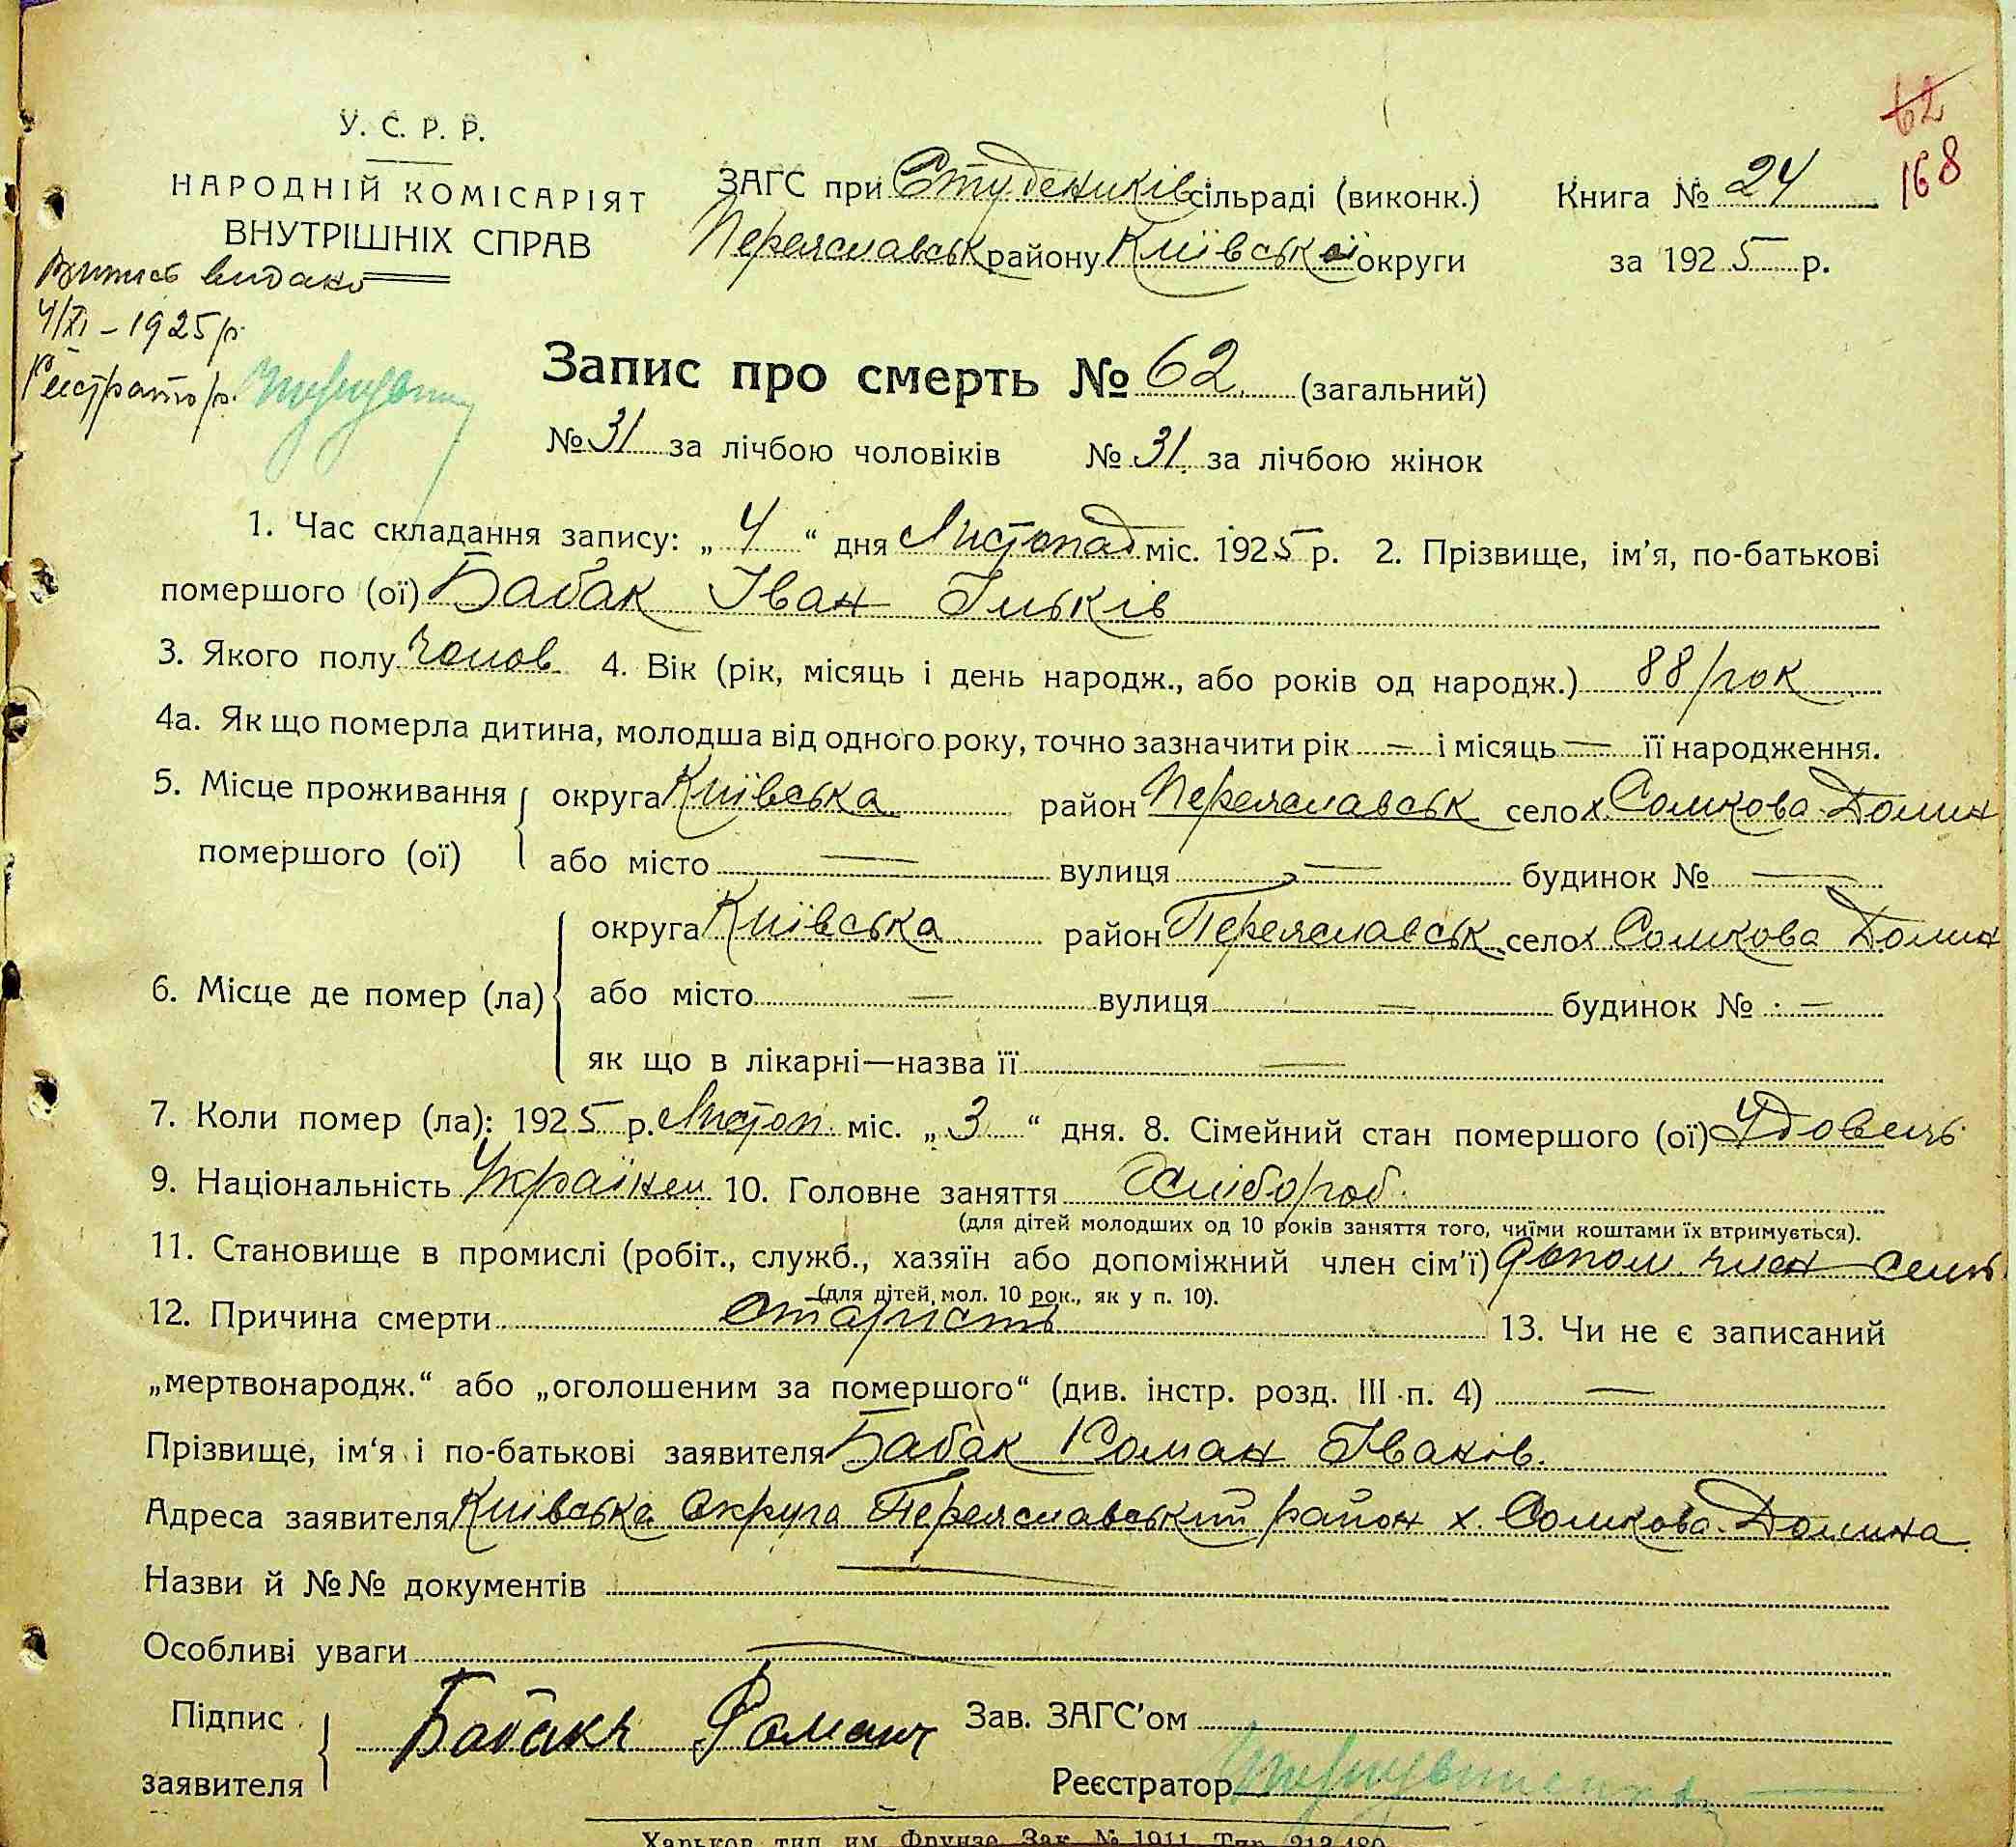 62
168
У. С. Р. Р.
НАРОДНІЙ КОМІСАРІЯТ
ВНУТРІШНІХ СПРАВ
ЗАГС при Студеників сільраді (виконк.) Книга № 24
Переяславськ району Київської округи за 1925 р.
Витяг видано
4/XI – 1925 р.
Реєстратор
Запис про смерть № 62 (загальний)
№ 31 за лічбою чоловіків № 31 за лічбою жінок
1. Час складання запису: „4“ дня Листопад міс. 1925 р. 2. Прізвище, ім'я, по-батькові
помершого (ої) Бабак Іван Ільків
3. Якого полу чолов. 4. Вік (рік, місяць і день народж., або років од народж.) 88 рок
4а. Як що померла дитина, молодша від одного року, точно зазначити рік — і місяць — її народження.
5. Місце проживання помершого (ої) округа Київська район Переяславськ село х. Сомкова Долин
або місто — вулиця — будинок № —
6. Місце де помер (ла) округа Київська район Переяславськ село х Сомкова Долин
або місто — вулиця — будинок № —
як що в лікарні—назва її —
7. Коли помер (ла): 1925 р. Листоп. міс. „3“ дня. 8. Сімейний стан помершого (ої) Удовець
9. Національність Українец 10. Головне заняття Хлібороб.
(для дітей молодших од 10 років заняття того, чиїми коштами їх втримується).
11. Становище в промислі (робіт., служб., хазяїн або допоміжний член сім'ї) допом член семї
(для дітей, мол. 10 рок., як у п. 10).
12. Причина смерти старість 13. Чи не є записаний
„мертвонародж.“ або „оголошеним за помершого“ (див. інстр. розд. III п. 4) —
Прізвище, ім'я і по-батькові заявителя Бабак Роман Іванів.
Адреса заявителя Київська Округа Переяславський район х. Сомкова Долина
Назви й №№ документів —
Особливі уваги —
Підпис заявителя Бабакъ Романъ Зав. ЗАГС'ом
Реєстратор
Харьков, тип. им. Фрунзе. Зак. № 1911. Тир. 213.480.